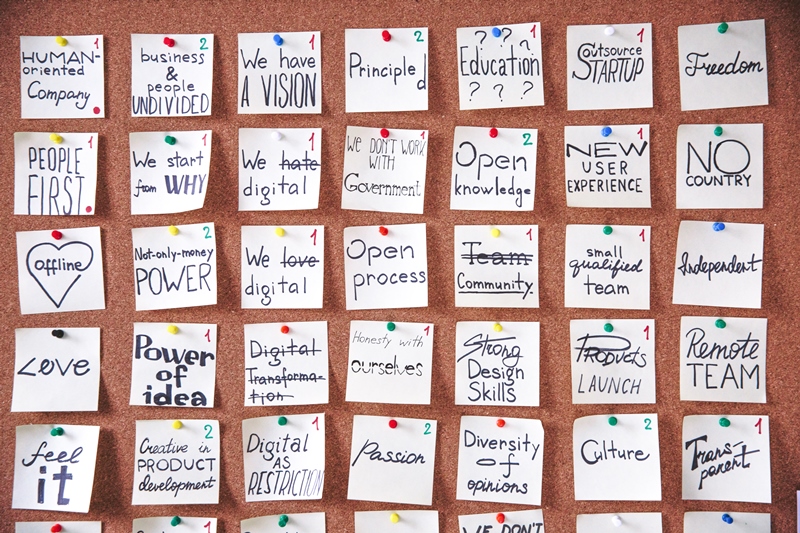 HUMAN-
oriented
Company
1
business
&
people
UNDIVIDED
2
We have
A VISION
1
Principled
2
? ? ?
Education
? ? ?
1
Outsource
STARTUP
1
Freedom
PEOPLE
FIRST
1
We start
from WHY
1
We hate
digital
1
WE DON'T WORK
WITH
Government
1
Open
knowledge
2
NEW
USER
EXPERIENCE
1
NO
COUNTRY
Offline
Not-only-money
POWER
2
We love
digital
1
Open
process
Team
Community.
1
small
qualified
team
1
Independent
LOVE
Power
of
idea
1
Digital
Transforma-
tion
Honesty with
ourselves
1
Strong
Design
Skills
Products
LAUNCH
1
Remote
TEAM
feel
it
Creative in
PRODUCT
development
2
Digital
AS
RESTRICTION
1
Passion
2
Diversity
of
opinions
Culture
2
Trans-
parent
1
1
WE DON'T